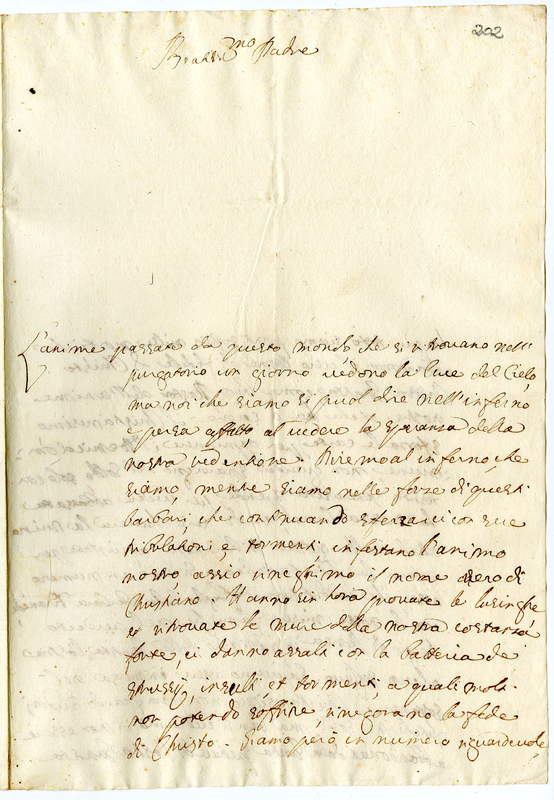 202
Beatiss.mo Padre
L'anime passate da questo mondo che si ritrovano nell'
purgatorio un giorno vedono la luce del Cielo,
ma noi che siamo si puol dire nell'inferno
è persa affatto, al vedere la speranza della
nostra redentione. Diremo al inferno che
siamo, mentre siamo nelle forze di questi
barbari che continuando sferzarci con sue
tribulationi e tormenti infestano l'animo
nostro acciò rineghimo il nome vero di
Christiano. Hanno sin hora provate le lusinghe
et ritrovate le mura della nostra costanza
forte, ci danno assalti con la batteria de
strussij, insulti, et tormenti, a quali molti
non potendo soffrire, rinegorano la fede
di Christo. Siamo però in numero riguardevole